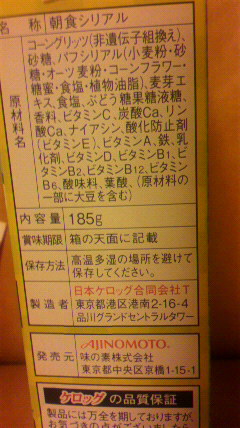 名称 朝食シリアル
原材料名
コーングリッツ(非遺伝子組換え)、
砂糖、パフシリアル(小麦粉・砂
糖・オーツ麦粉・コーンフラワー・
糖蜜・食塩・植物油脂)、麦芽エ
キス、食塩、ぶどう糖果糖液糖、
香料、ビタミンC、炭酸Ca、リン
酸Ca、ナイアシン、酸化防止剤
(ビタミンE)、ビタミンA、鉄、乳
化剤、ビタミンD、ビタミンB₁、ビ
タミンB₂、ビタミンB₁₂、ビタミン
B₆、酸味料、葉酸、(原材料の
一部に大豆を含む)
内容量 185g
賞味期限 箱の天面に記載
保存方法 高温多湿の場所を避けて
保存してください。
製造者 日本ケロッグ合同会社T
東京都港区港南2-16-4
品川グランドセントラルタワー
発売元 AJINOMOTO
味の素株式会社
東京都中央区京橋1-15-1
ケロッグの品質保証
製品には万全を期しておりますが、
お気づきの点がございましたら